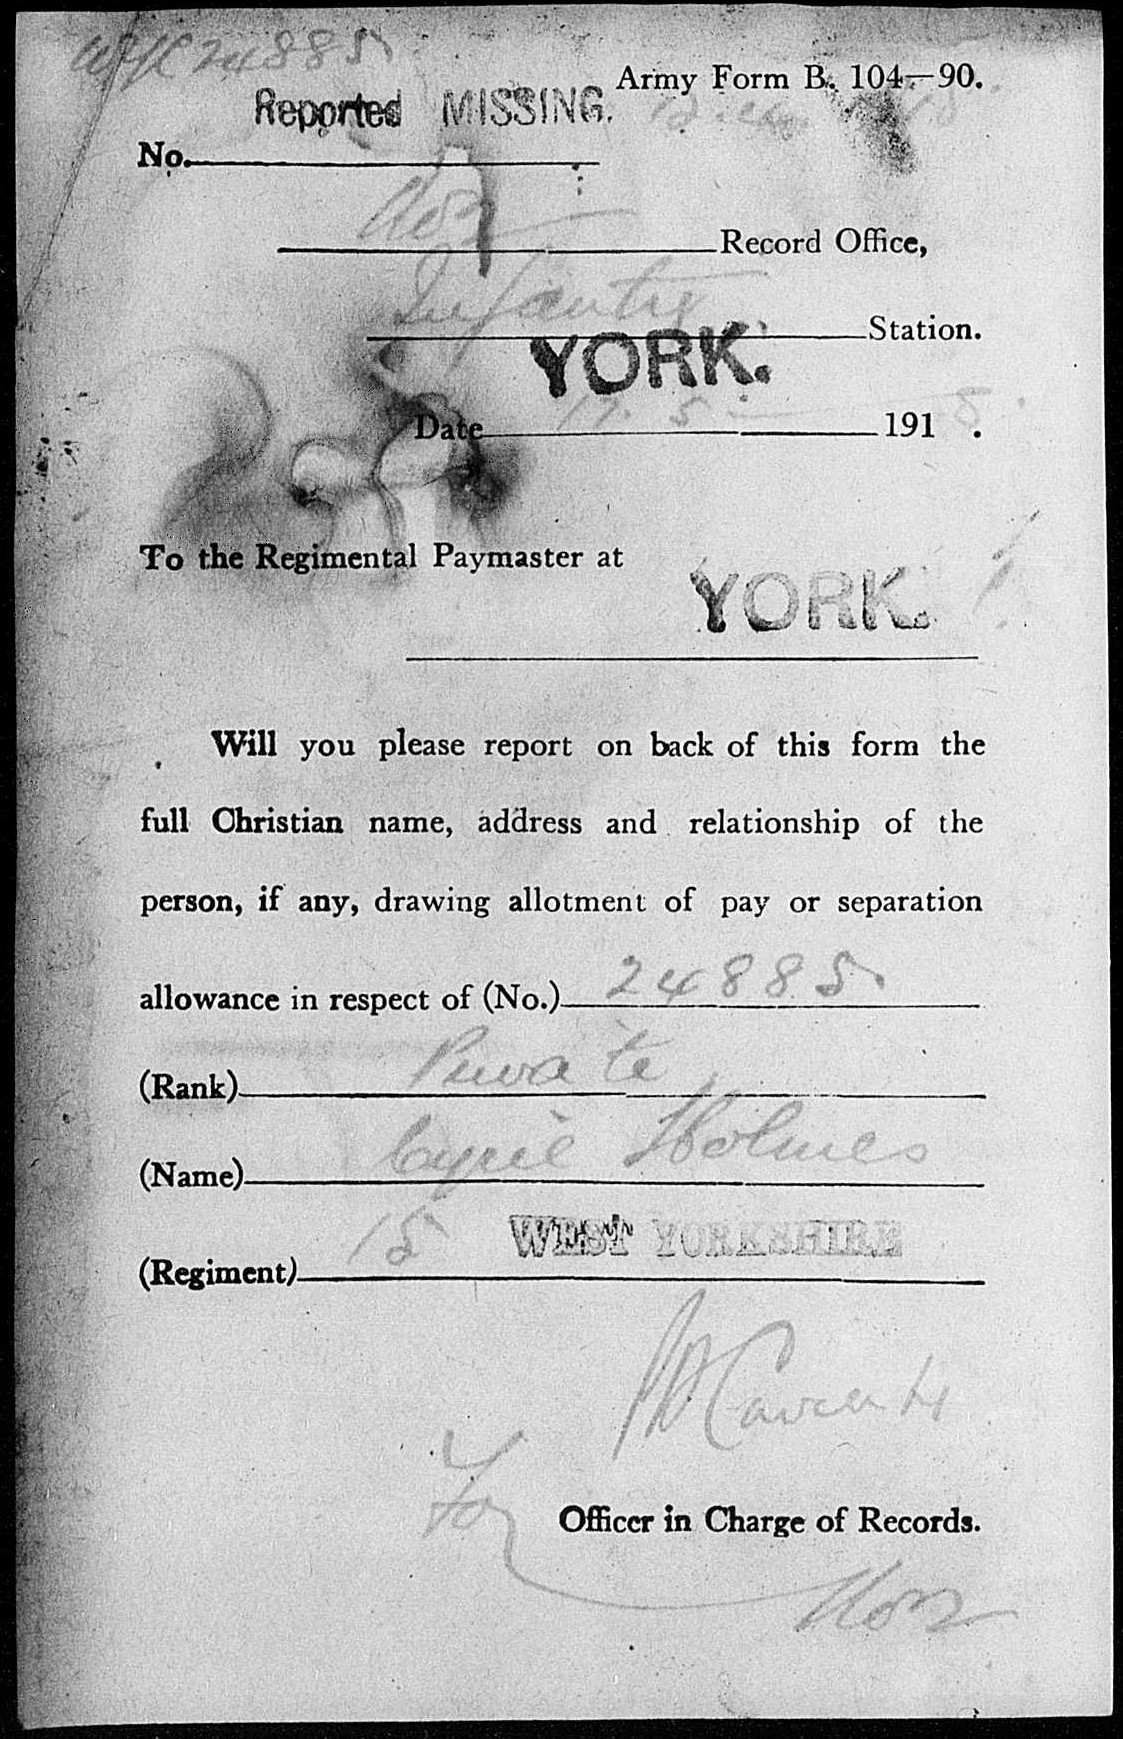 24885
Army Form B. 104—90.
Reported MISSING.
No.
Record Office,
Infantry
Station.
YORK.
Date 17. 5. 191 8.
To the Regimental Paymaster at
YORK.
Will you please report on back of this form the
full Christian name, address and relationship of the
person, if any, drawing allotment of pay or separation
allowance in respect of (No.) 24885
(Rank) Private
(Name) Cyril Holmes
(Regiment) 15 WEST YORKSHIRE
For
Officer in Charge of Records.